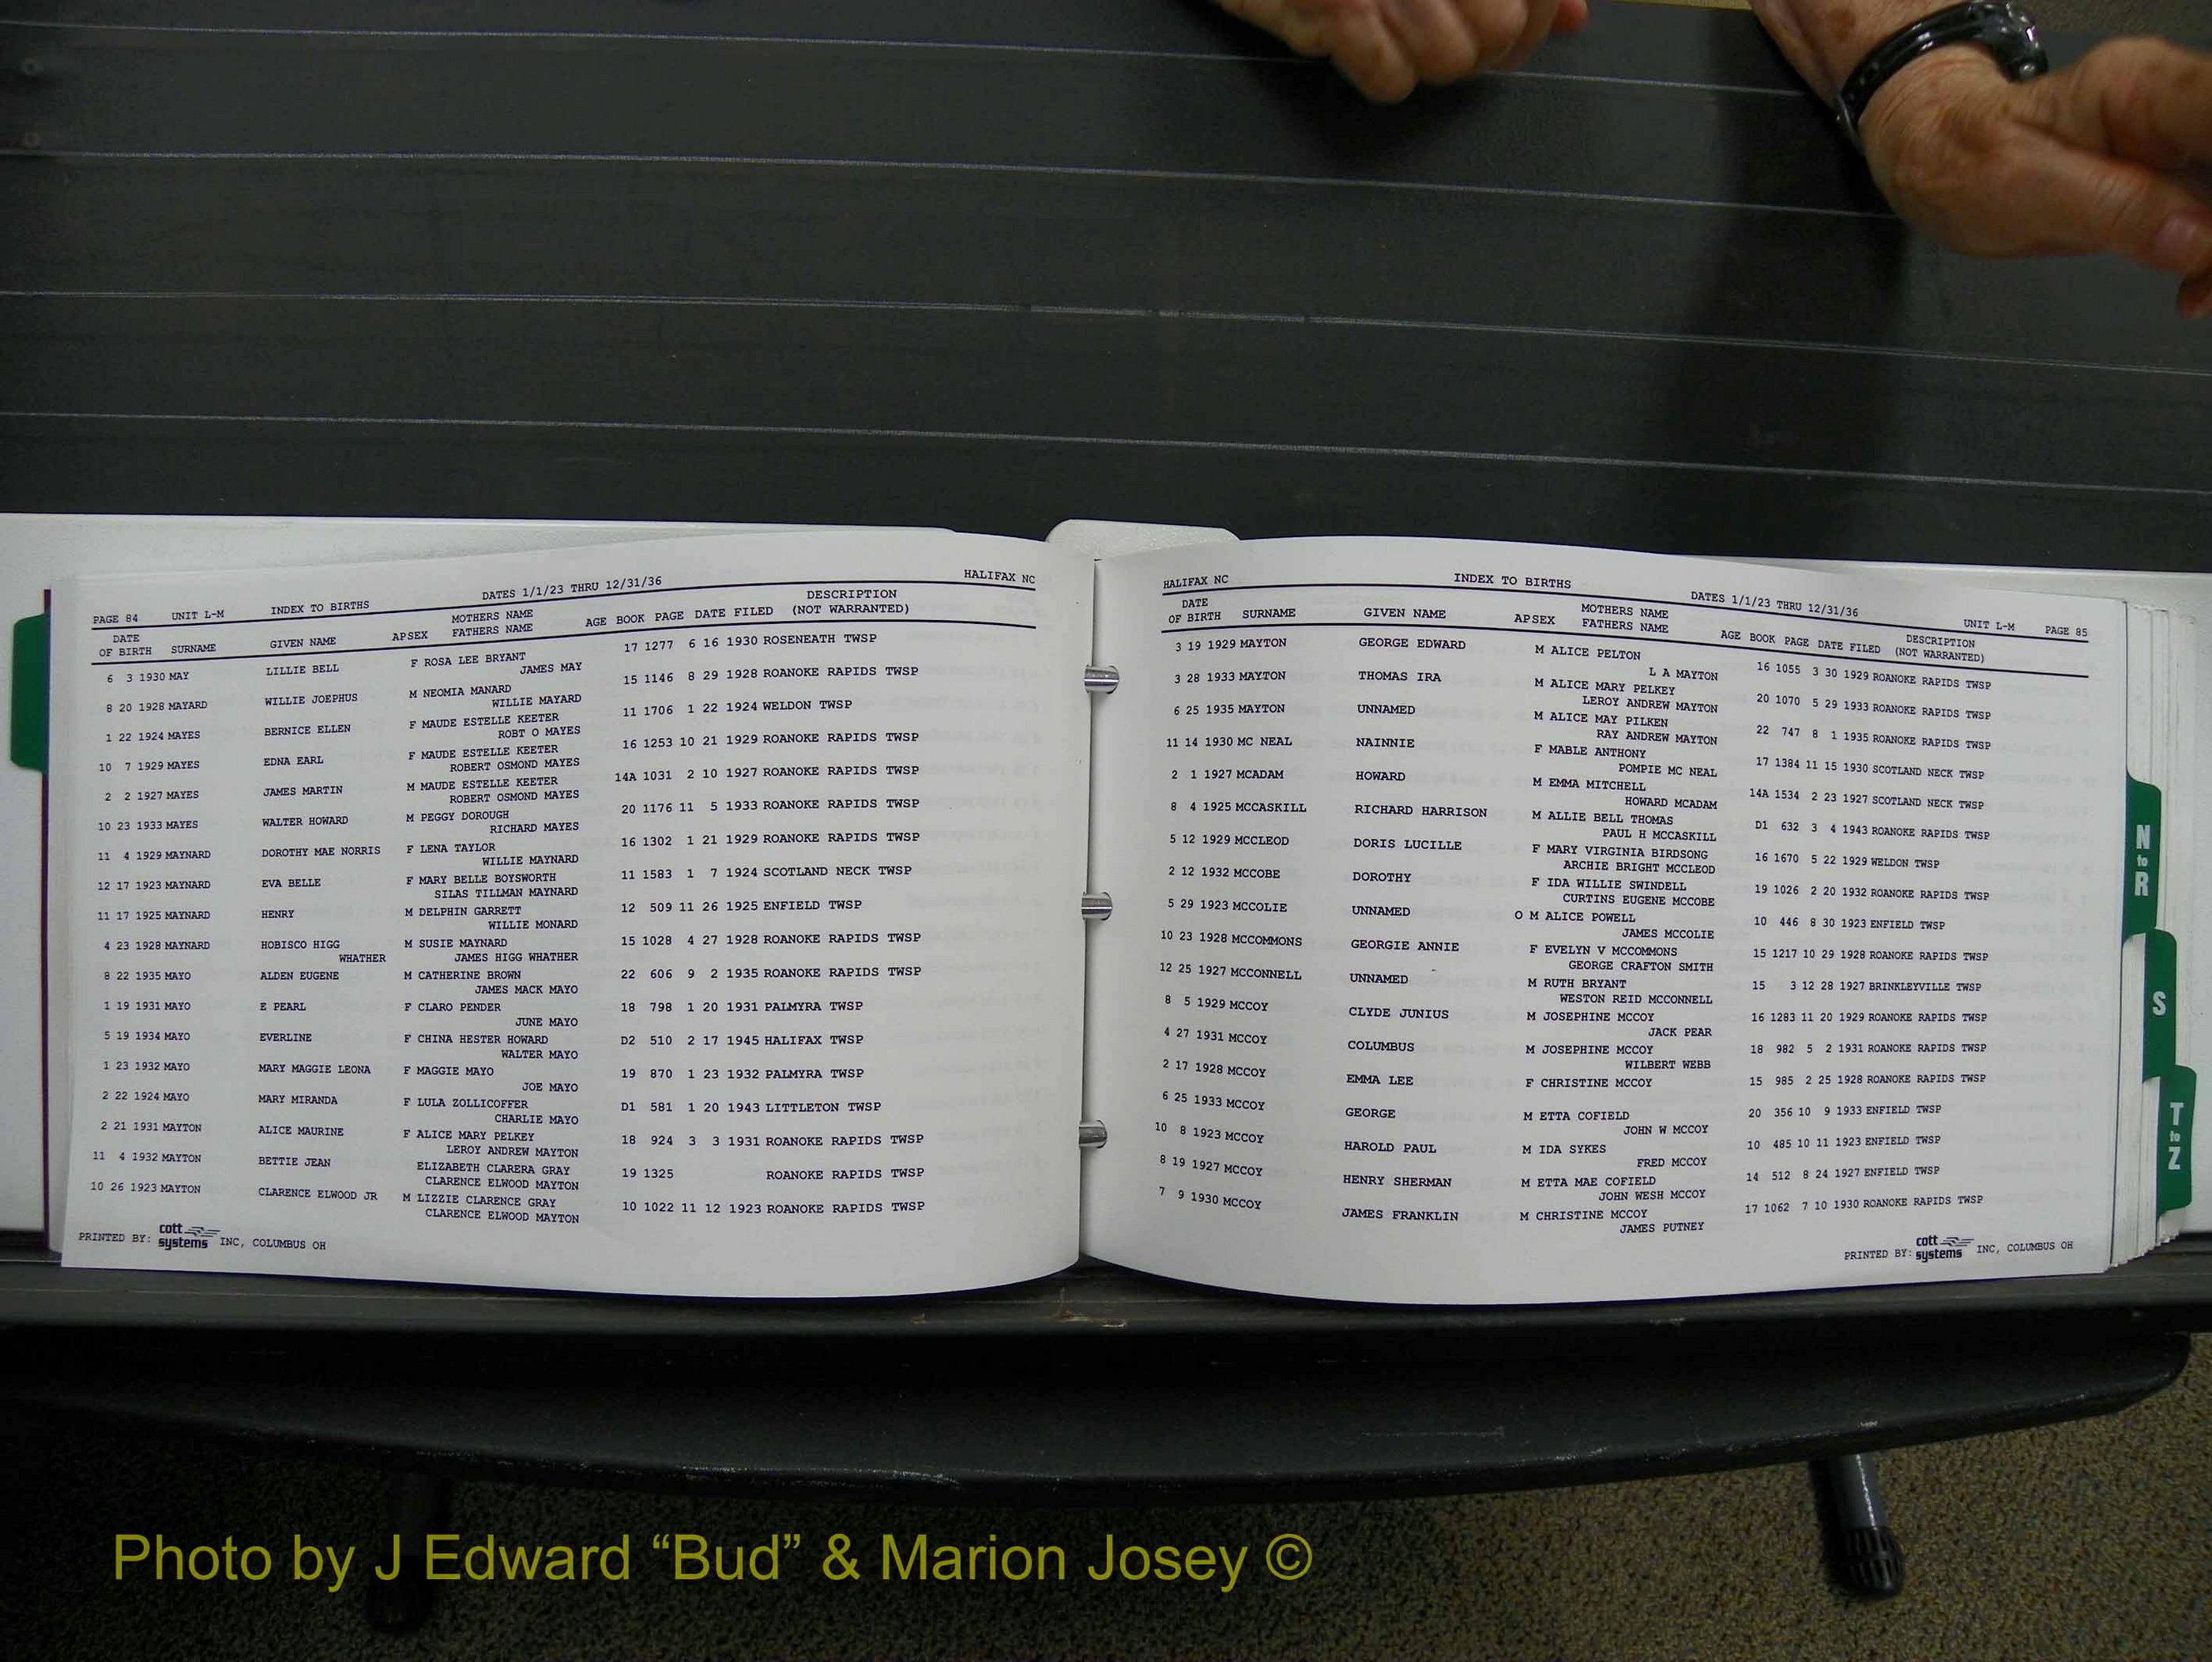 PAGE 84 UNIT L-M INDEX TO BIRTHS DATES 1/1/23 THRU 12/31/36 HALIFAX NC
DATE MOTHERS NAME DESCRIPTION
OF BIRTH SURNAME GIVEN NAME APSEX FATHERS NAME AGE BOOK PAGE DATE FILED (NOT WARRANTED)
6 3 1930 MAY LILLIE BELL F ROSA LEE BRYANT 17 1277 6 16 1930 ROSENEATH TWSP
JAMES MAY
8 20 1928 MAYARD WILLIE JOEPHUS M NEOMIA MANARD 15 1146 8 29 1928 ROANOKE RAPIDS TWSP
WILLIE MAYARD
1 22 1924 MAYES BERNICE ELLEN F MAUDE ESTELLE KEETER 11 1706 1 22 1924 WELDON TWSP
ROBT O MAYES
10 7 1929 MAYES EDNA EARL F MAUDE ESTELLE KEETER 16 1253 10 21 1929 ROANOKE RAPIDS TWSP
ROBERT OSMOND MAYES
2 2 1927 MAYES JAMES MARTIN M MAUDE ESTELLE KEETER 14A 1031 2 10 1927 ROANOKE RAPIDS TWSP
ROBERT OSMOND MAYES
10 23 1933 MAYES WALTER HOWARD M PEGGY DOROUGH 20 1176 11 5 1933 ROANOKE RAPIDS TWSP
RICHARD MAYES
11 4 1929 MAYNARD DOROTHY MAE NORRIS F LENA TAYLOR 16 1302 1 21 1929 ROANOKE RAPIDS TWSP
WILLIE MAYNARD
12 17 1923 MAYNARD EVA BELLE F MARY BELLE BOYSWORTH 11 1583 1 7 1924 SCOTLAND NECK TWSP
SILAS TILLMAN MAYNARD
11 17 1925 MAYNARD HENRY M DELPHIN GARRETT 12 509 11 26 1925 ENFIELD TWSP
WILLIE MONARD
4 23 1928 MAYNARD HOBISCO HIGG M SUSIE MAYNARD 15 1028 4 27 1928 ROANOKE RAPIDS TWSP
WHATHER JAMES HIGG WHATHER
8 22 1935 MAYO ALDEN EUGENE M CATHERINE BROWN 22 606 9 2 1935 ROANOKE RAPIDS TWSP
JAMES MACK MAYO
1 19 1931 MAYO E PEARL F CLARO PENDER 18 798 1 20 1931 PALMYRA TWSP
JUNE MAYO
5 19 1934 MAYO EVERLINE F CHINA HESTER HOWARD D2 510 2 17 1945 HALIFAX TWSP
WALTER MAYO
1 23 1932 MAYO MARY MAGGIE LEONA F MAGGIE MAYO 19 870 1 23 1932 PALMYRA TWSP
JOE MAYO
2 22 1924 MAYO MARY MIRANDA F LULA ZOLLICOFFER D1 581 1 20 1943 LITTLETON TWSP
CHARLIE MAYO
2 21 1931 MAYTON ALICE MAURINE F ALICE MARY PELKEY 18 924 3 3 1931 ROANOKE RAPIDS TWSP
LEROY ANDREW MAYTON
11 4 1932 MAYTON BETTIE JEAN ELIZABETH CLARERA GRAY 19 1325 ROANOKE RAPIDS TWSP
CLARENCE ELWOOD MAYTON
10 26 1923 MAYTON CLARENCE ELWOOD JR M LIZZIE CLARENCE GRAY 10 1022 11 12 1923 ROANOKE RAPIDS TWSP
CLARENCE ELWOOD MAYTON
PRINTED BY: cott systems INC, COLUMBUS OH
HALIFAX NC INDEX TO BIRTHS DATES 1/1/23 THRU 12/31/36 UNIT L-M PAGE 85
DATE MOTHERS NAME DESCRIPTION
OF BIRTH SURNAME GIVEN NAME APSEX FATHERS NAME AGE BOOK PAGE DATE FILED (NOT WARRANTED)
3 19 1929 MAYTON GEORGE EDWARD M ALICE PELTON 16 1055 3 30 1929 ROANOKE RAPIDS TWSP
L A MAYTON
3 28 1933 MAYTON THOMAS IRA M ALICE MARY PELKEY 20 1070 5 29 1933 ROANOKE RAPIDS TWSP
LEROY ANDREW MAYTON
6 25 1935 MAYTON UNNAMED M ALICE MAY PILKEN 22 747 8 1 1935 ROANOKE RAPIDS TWSP
RAY ANDREW MAYTON
11 14 1930 MC NEAL NAINNIE F MABLE ANTHONY 17 1384 11 15 1930 SCOTLAND NECK TWSP
POMPIE MC NEAL
2 1 1927 MCADAM HOWARD M EMMA MITCHELL 14A 1534 2 23 1927 SCOTLAND NECK TWSP
HOWARD MCADAM
8 4 1925 MCCASKILL RICHARD HARRISON M ALLIE BELL THOMAS D1 632 3 4 1943 ROANOKE RAPIDS TWSP
PAUL H MCCASKILL
5 12 1929 MCCLEOD DORIS LUCILLE F MARY VIRGINIA BIRDSONG 16 1670 5 22 1929 WELDON TWSP
ARCHIE BRIGHT MCCLEOD
2 12 1932 MCCOBE DOROTHY F IDA WILLIE SWINDELL 19 1026 2 20 1932 ROANOKE RAPIDS TWSP
CURTINS EUGENE MCCOBE
5 29 1923 MCCOLIE UNNAMED O M ALICE POWELL 10 446 8 30 1923 ENFIELD TWSP
JAMES MCCOLIE
10 23 1928 MCCOMMONS GEORGIE ANNIE F EVELYN V MCCOMMONS 15 1217 10 29 1928 ROANOKE RAPIDS TWSP
GEORGE CRAFTON SMITH
12 25 1927 MCCONNELL UNNAMED M RUTH BRYANT 15 3 12 28 1927 BRINKLEYVILLE TWSP
WESTON REID MCCONNELL
8 5 1929 MCCOY CLYDE JUNIUS M JOSEPHINE MCCOY 16 1283 11 20 1929 ROANOKE RAPIDS TWSP
JACK PEAR
4 27 1931 MCCOY COLUMBUS M JOSEPHINE MCCOY 18 982 5 2 1931 ROANOKE RAPIDS TWSP
WILBERT WEBB
2 17 1928 MCCOY EMMA LEE F CHRISTINE MCCOY 15 985 2 25 1928 ROANOKE RAPIDS TWSP
6 25 1933 MCCOY GEORGE M ETTA COFIELD 20 356 10 9 1933 ENFIELD TWSP
JOHN W MCCOY
10 8 1923 MCCOY HAROLD PAUL M IDA SYKES 10 485 10 11 1923 ENFIELD TWSP
FRED MCCOY
8 19 1927 MCCOY HENRY SHERMAN M ETTA MAE COFIELD 14 512 8 24 1927 ENFIELD TWSP
JOHN WESH MCCOY
7 9 1930 MCCOY JAMES FRANKLIN M CHRISTINE MCCOY 17 1062 7 10 1930 ROANOKE RAPIDS TWSP
JAMES PUTNEY
PRINTED BY: cott systems INC, COLUMBUS OH
N to R
S
T to Z
Photo by J Edward “Bud” & Marion Josey ©